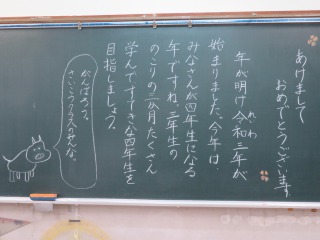 あけまして
おめでとうございます。
年が明け令和三年が
れいわ
始まりました。今年は、
みなさんが四年生になる
年ですね。三年生の
のこりの三ヵ月たくさん
学んですてきな四年生を
目指しましょう。
がんばろう。
さいこうクラスのみんな。